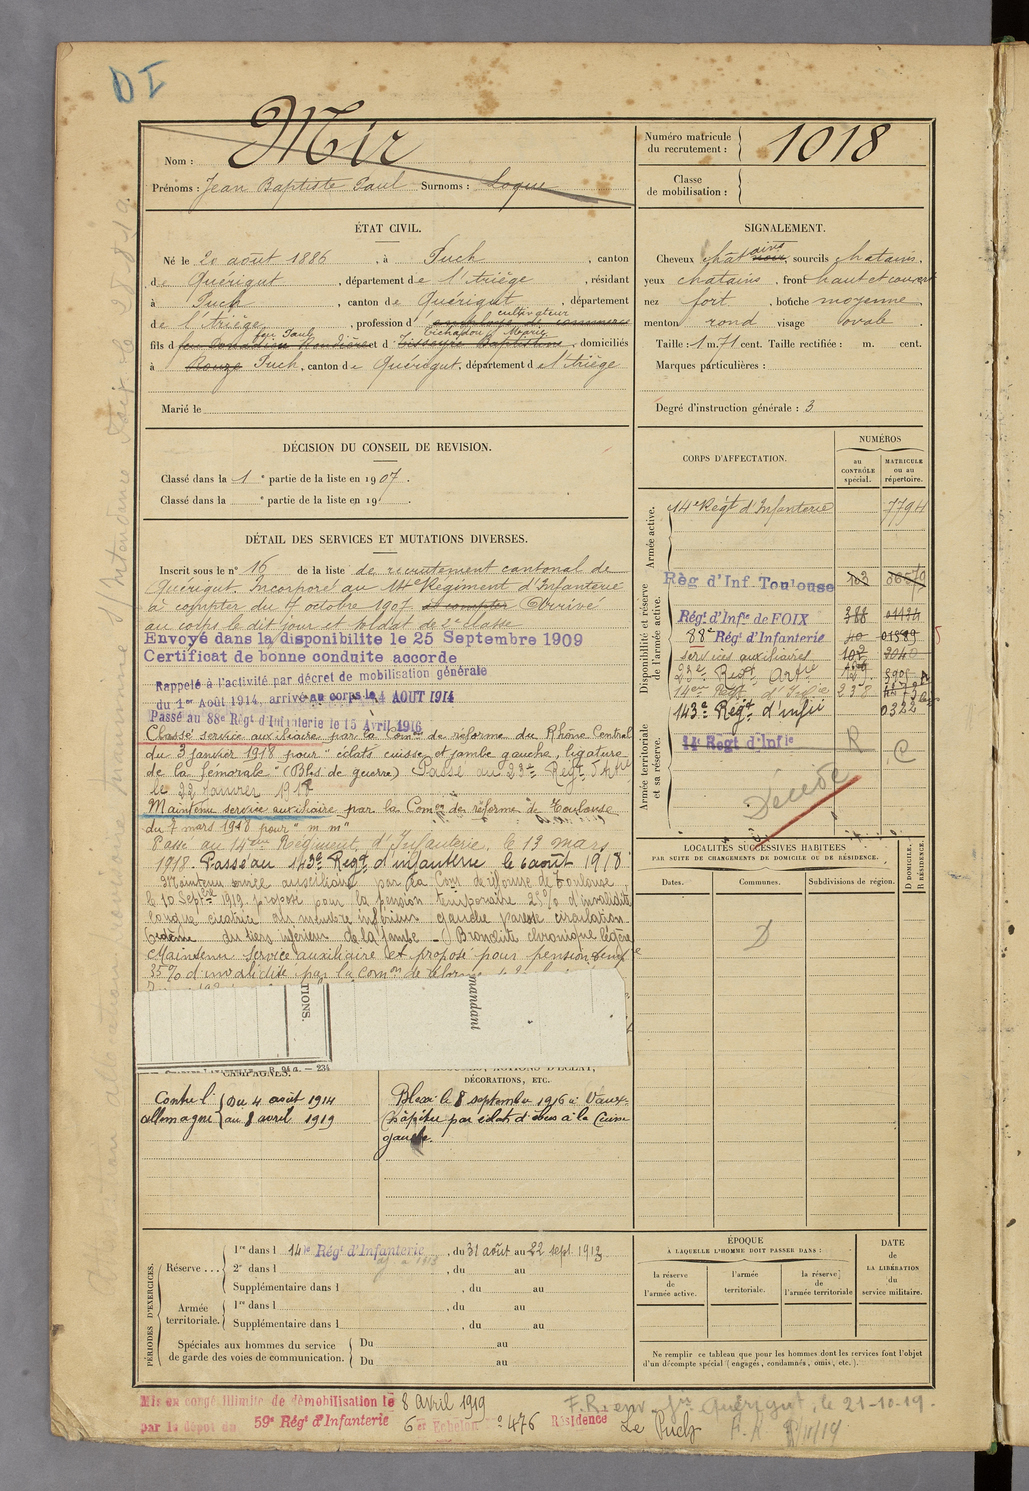 D I
Nom : Mir
Prénoms : Jean Baptiste Paul Surnoms : Loque
Numéro matricule du recrutement : 1018
Classe de mobilisation :
ÉTAT CIVIL.
Né le 20 août 1886, à Puch, canton
de Quérigut, département de l'Ariège, résidant
à Puch, canton de Quérigut, département
de l'Ariège, profession d' employé de commerce cultivateur
fils de feu Paul et d' Marie, domiciliés
à Rouze Puch, canton de Quérigut, département de l'Ariège
Marié le
SIGNALEMENT.
Cheveux chatains, sourcils chatains.
yeux chatains, front haut et couvert
nez fort, bouche moyenne
menton rond visage ovale.
Taille : 1 m. 71 cent. Taille rectifiée : m. cent.
Marques particulières :
Degré d'instruction générale : 3
DÉCISION DU CONSEIL DE REVISION.
Classé dans la 1e partie de la liste en 1907.
Classé dans la e partie de la liste en 19 .
DÉTAIL DES SERVICES ET MUTATIONS DIVERSES.
Inscrit sous le n° 16 de la liste de recrutement cantonal de
Quérigut. Incorporé au 14e Régiment d'Infanterie
à compter du 7 octobre 1907 et compter Arrivé
au corps le dit jour et soldat de 2e classe
Envoyé dans la disponibilite le 25 Septembre 1909
Certificat de bonne conduite accorde
Rappelé à l'activité par décret de mobilisation générale
du 1er Août 1914, arrivé au corps le 4 AOUT 1914
Passé au 88e Régt d'Infanterie le 15 Avril 1916
Classé service auxiliaire par la Comon de réforme du Rhône Central
du 3 janvier 1918 pour "éclats cuisse et jambe gauche, ligature
de la fémorale" (Bles. de guerre) Passé au 23e Régt d'Artie
le 22 Janvier 1918
Maintenu service auxiliaire par la Comon de réforme de Toulouse
du 7 mars 1918 pour "m m"
Passé au 14eme Régiment d'Infanterie, le 13 mars
1918. Passé au 143e Régt d'infanterie le 6 août 1918
Maintenu service auxiliaire par la Com de réforme de Toulouse
le 10 Septbre 1919 proposé pour la pension temporaire 25% d'invalidité
longue cicatrice au membre inférieur gauche parésie circulation
œdème du tiers inférieur de la jambe - Bronchite chronique légère
Maintenu service auxiliaire et proposé pour pension
35% d'invalidité par la Comon de réforme
CORPS D'AFFECTATION.
NUMÉROS
au CONTRÔLE spécial.
MATRICULE ou au répertoire.
Armée active.
14e Régt d'Infanterie 7794
Disponibilité et réserve de l'armée active.
Règ d'Inf. Toulouse 102
Régt d'Infie de FOIX 388
88e Régt d'Infanterie 40 01589
services auxiliaires 102 2040
23e Regt, Artie
14eme Regt d'Infie
143e Regt d'infie 0322
Armée territoriale et sa réserve.
14 Regt d'Infie R C
LOCALITÉS SUCCESSIVES HABITÉES
PAR SUITE DE CHANGEMENTS DE DOMICILE OU DE RÉSIDENCE.
Dates. Communes. Subdivisions de région. D DOMICILE. R RÉSIDENCE.
D
TIONS.
mandant
CAMPAGNES.
Contre l' Du 4 août 1914
allemagne au 8 avril 1919
DÉCORATIONS, ETC.
Blessé le 8 septembre 1916 à Vaux-
Chapitre par éclats d'obus à la Cuisse
gauche.
PÉRIODES D'EXERCICES.
Réserve... 1re dans l 14e Régt d'Infanterie, du 31 août au 22 sept. 1913
2e dans l , du au
Supplémentaire dans l , du au
Armée territoriale. 1re dans l , du au
Supplémentaire dans l , du au
Spéciales aux hommes du service de garde des voies de communication. Du au
Du au
ÉPOQUE
À LAQUELLE L'HOMME DOIT PASSER DANS :
la réserve de l'armée active.
l'armée territoriale.
la réserve de l'armée territoriale
DATE de LA LIBÉRATION du service militaire.
Ne remplir ce tableau que pour les hommes dont les services font l'objet
d'un décompte spécial (engagés, condamnés, omis, etc.).
Mis en congé illimité de démobilisation le 8 avril 1919
par le dépôt du 59e Rég d'Infanterie 6e Echelon n° 476 Résidence Le Puch
Quérigut, le 21-10-19.